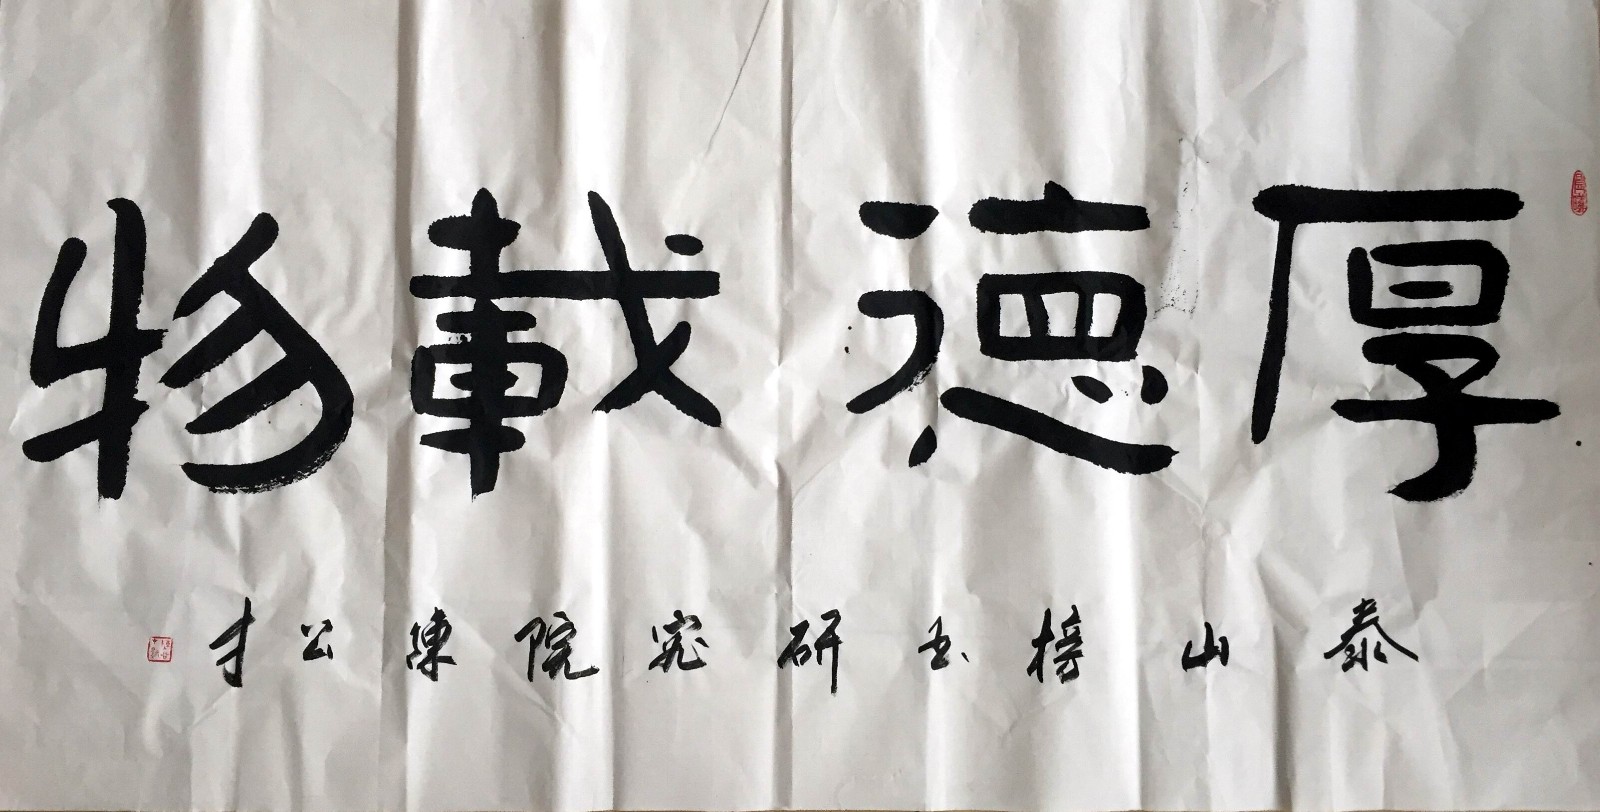 厚德載物
泰山榜书研究院陳公才